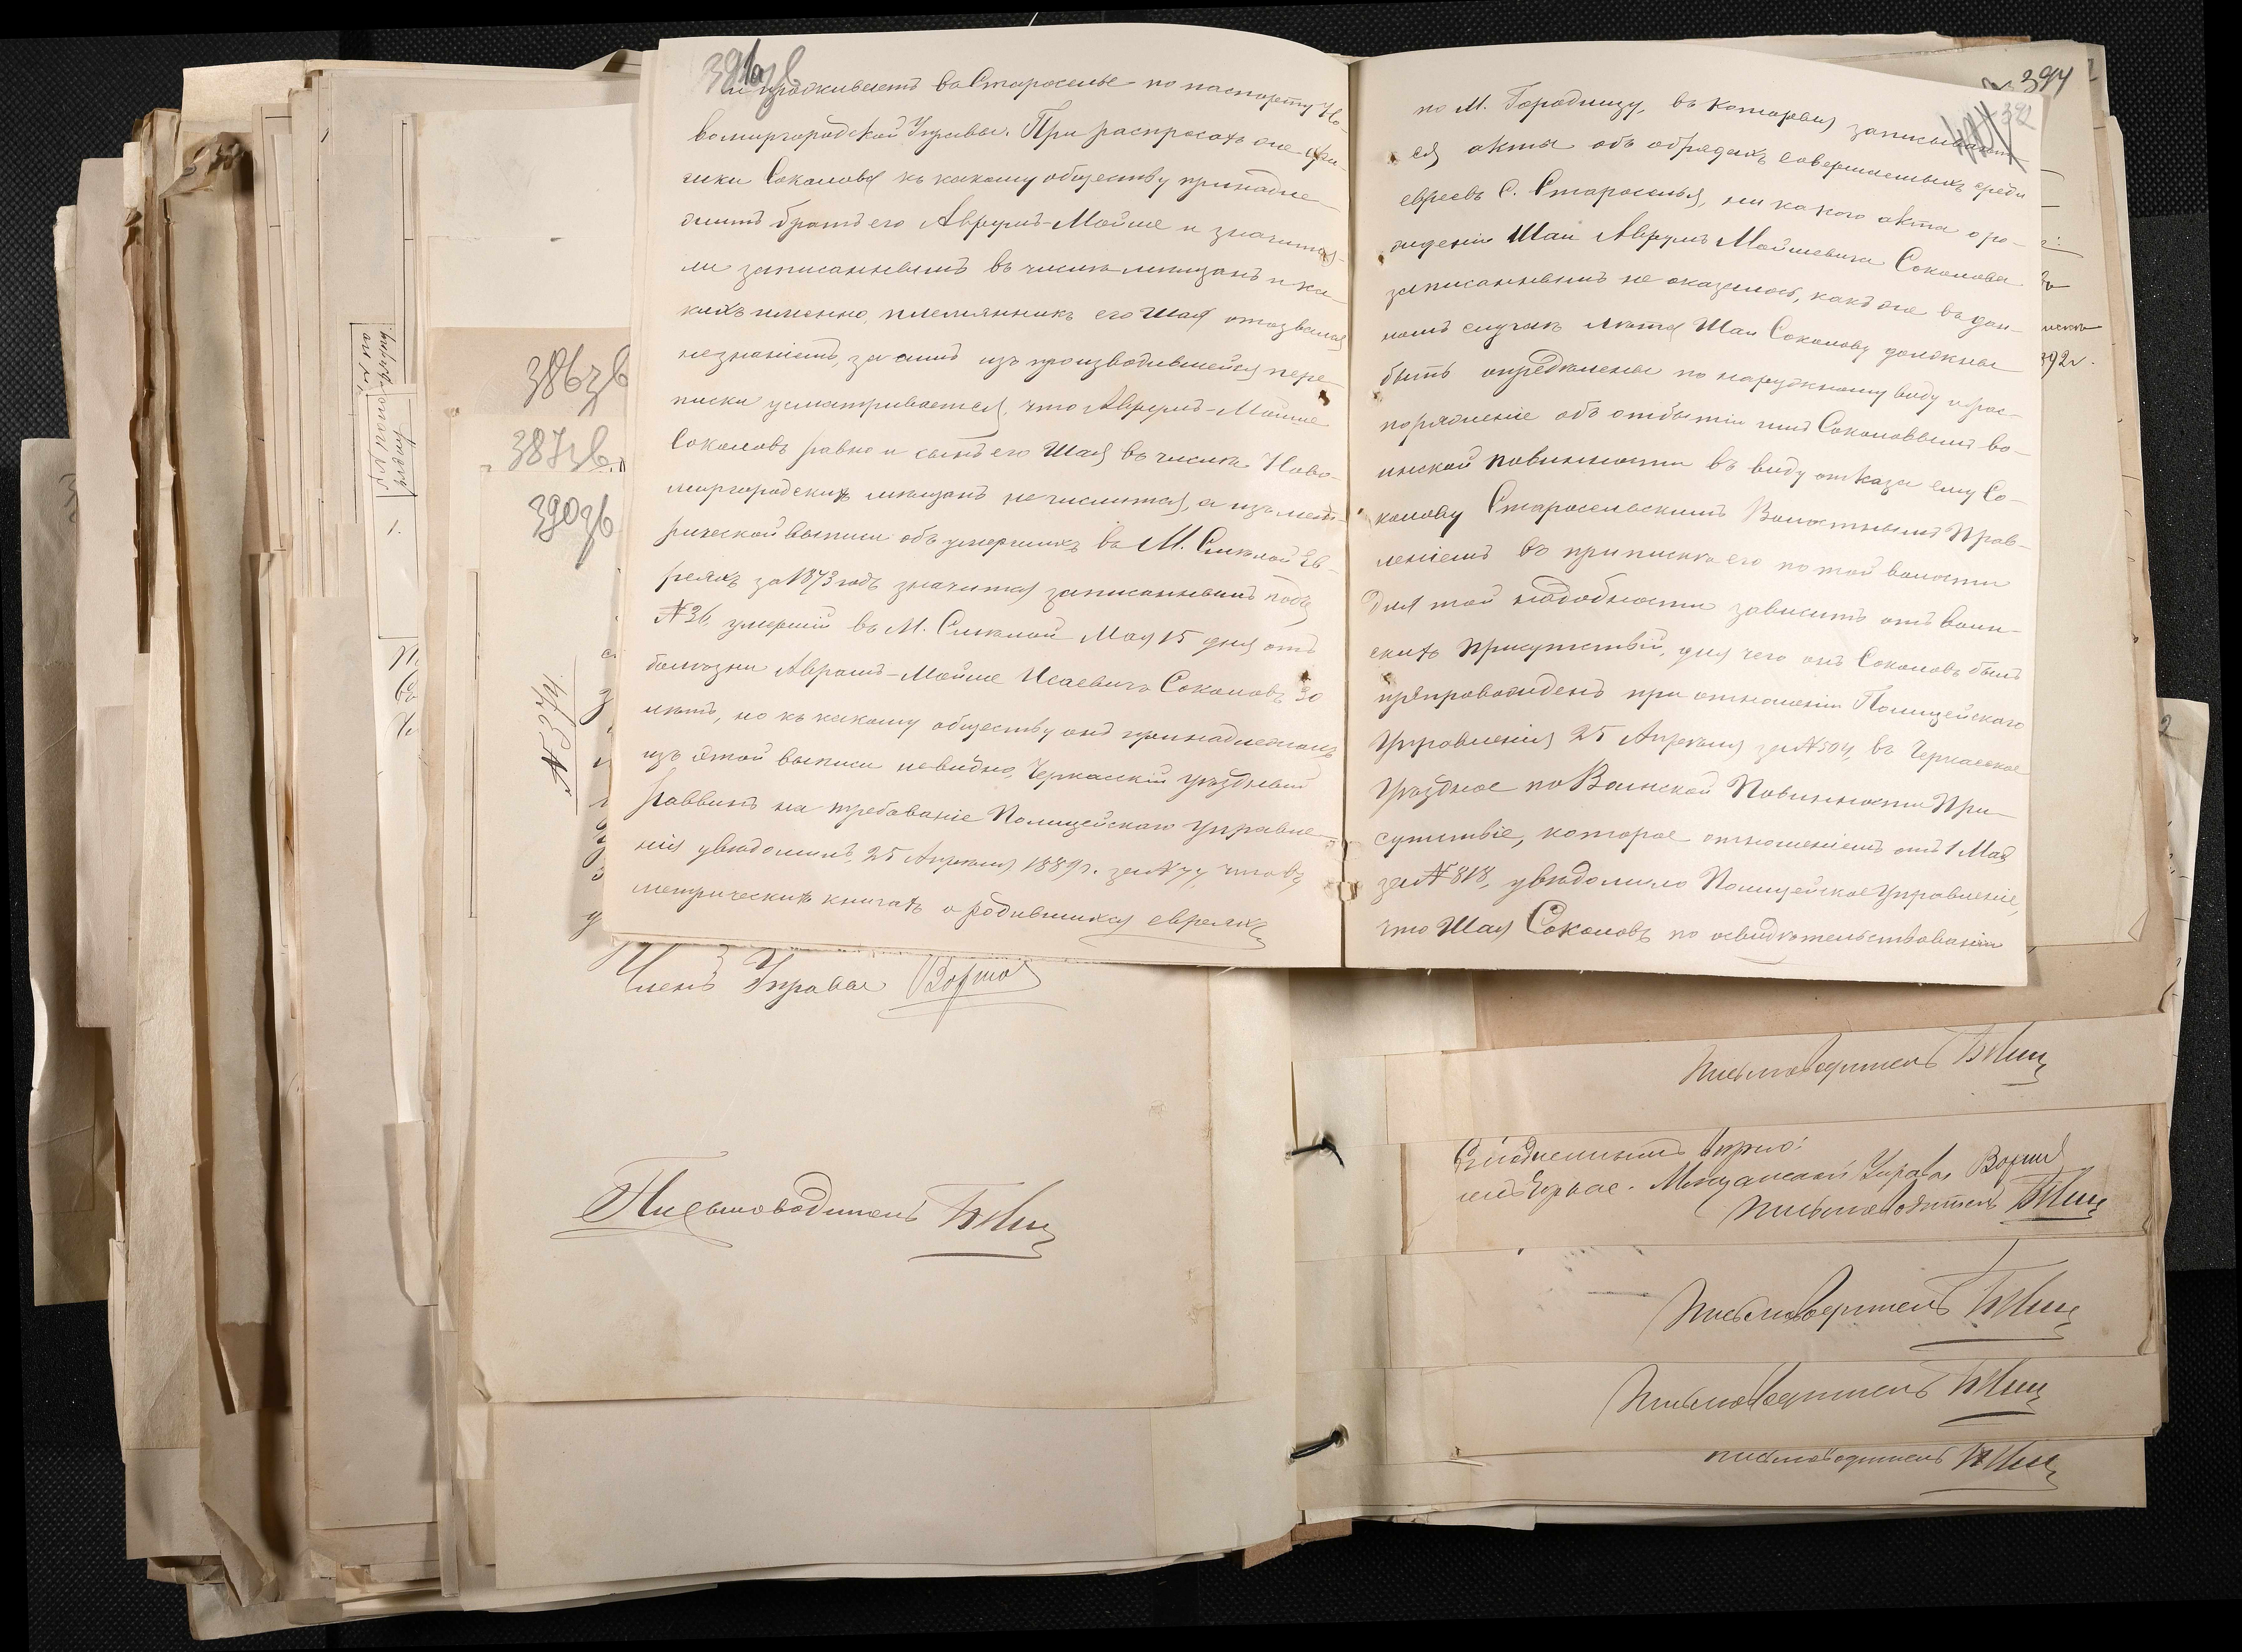 391зв
и проживаетъ въ Староселье по паспорту Но-
вомиргородской Управы. При распросахъ же
Соколова къ какому обществу принадле-
житъ братъ его Аврумъ-Мойше и значится-
ли записаннымъ въ число мѣщанъ и ка-
кихъ именно, племянникъ его Шая отозвался
незнаніемъ, за симъ изъ производившейся пере-
писки усматривается, что Аврумъ-Мойше
Соколовъ равно и сынъ его Шая въ числѣ Ново-
миргородскихъ мѣщанъ не числится, а изъ мет-
рической выписи объ умершихъ въ М. Смѣлой Ев-
реяхъ за 1873 годъ значится записаннымъ подъ
№ 36, умершій въ М. Смѣлой Мая 15 дня отъ
болѣзни Авромъ-Мойше Исаевичъ Соколовъ 30
лѣтъ, но къ какому обществу онъ принадлежалъ
изъ этой выписи невидно, Черкасскій уѣздный
раввинъ на требованіе Полицейскаго Управле-
нія увѣдомилъ, 25 Апрѣля 1889 г. за № 77, что въ
метрическихъ книгахъ о родившихся евреяхъ
394
392
по М. Городищу, въ которыя записывают-
ся акты объ обрядахъ совершаемыхъ среди
евреевъ С. Староселья, ни какого акта о ро-
жденіи Шаи Аврумъ Мойшевича Соколова
записаннымъ не оказалось, какъ же въ дан-
номъ случаѣ лѣта Шаи Соколову должны
быть опредѣлены по наружному виду и рас-
поряженіе объ отбытіи имъ Соколовымъ во-
инской повинности въ виду отказа ему Со-
колову Старосельскимъ Волостнымъ Прав-
леніемъ въ припискѣ его по той волости
для той надобности зависитъ отъ Воин-
скихъ Присутствій, для чего онъ Соколовъ былъ
препровожденъ при отношеніи Полицейскаго
Управленія 25 Апрѣля за № 504, въ Черкасское
Уѣздное по Воинской Повинности При-
сутствіе, которое отношеніемъ отъ 1 Мая
за № 818, увѣдомило Полицейское Управленіе,
что Шая Соколовъ по освидѣтельствованіи
386зв
387зв
390зв
1.
Членъ Управы
Письмоводитель
Письмоводитель
Мѣщанской Управы
Письмоводитель
Письмоводитель
Письмоводитель
Письмоводитель